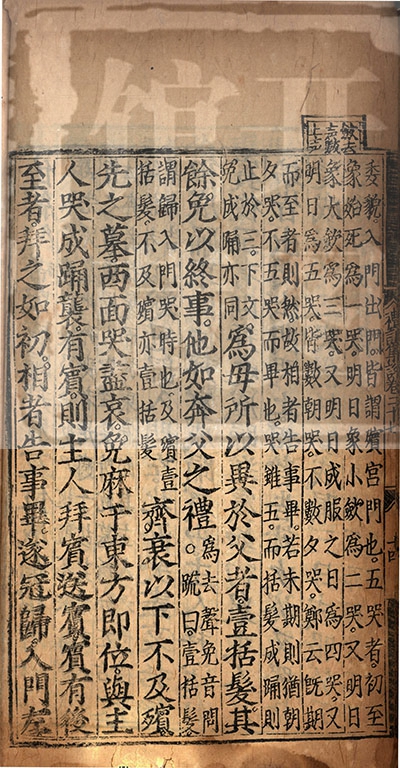 斂去
声數
上声
委貌入門出門皆謂殯宮門也。五哭者。初至
象始死為一哭。明日象小斂為二哭。又明日
象大斂為三哭。又明日成服之日為四哭。又
明日為五哭。皆數朝哭。不數夕哭。鄭云既期
而至者則然故相者告事畢。若未期則猶朝
夕哭。不五哭而畢也。哭雖五。而括髮成踊則
止於三。下文
免成踊亦同
為母所以異於父者壹括髮其
餘免以終事。他如奔父之禮。
為去聲免音問
䟽曰。壹括髮
謂歸入門哭時也。及殯壹
括髮不及殯亦壹括髮
齊衰以下不及殯
先之墓。西面哭盡哀。免麻于東方即位與主
人哭成踊。襲。有賓。則主人拜賓送賓。賓有後
至者。拜之如初。相者告事畢。遂冠歸。入門左